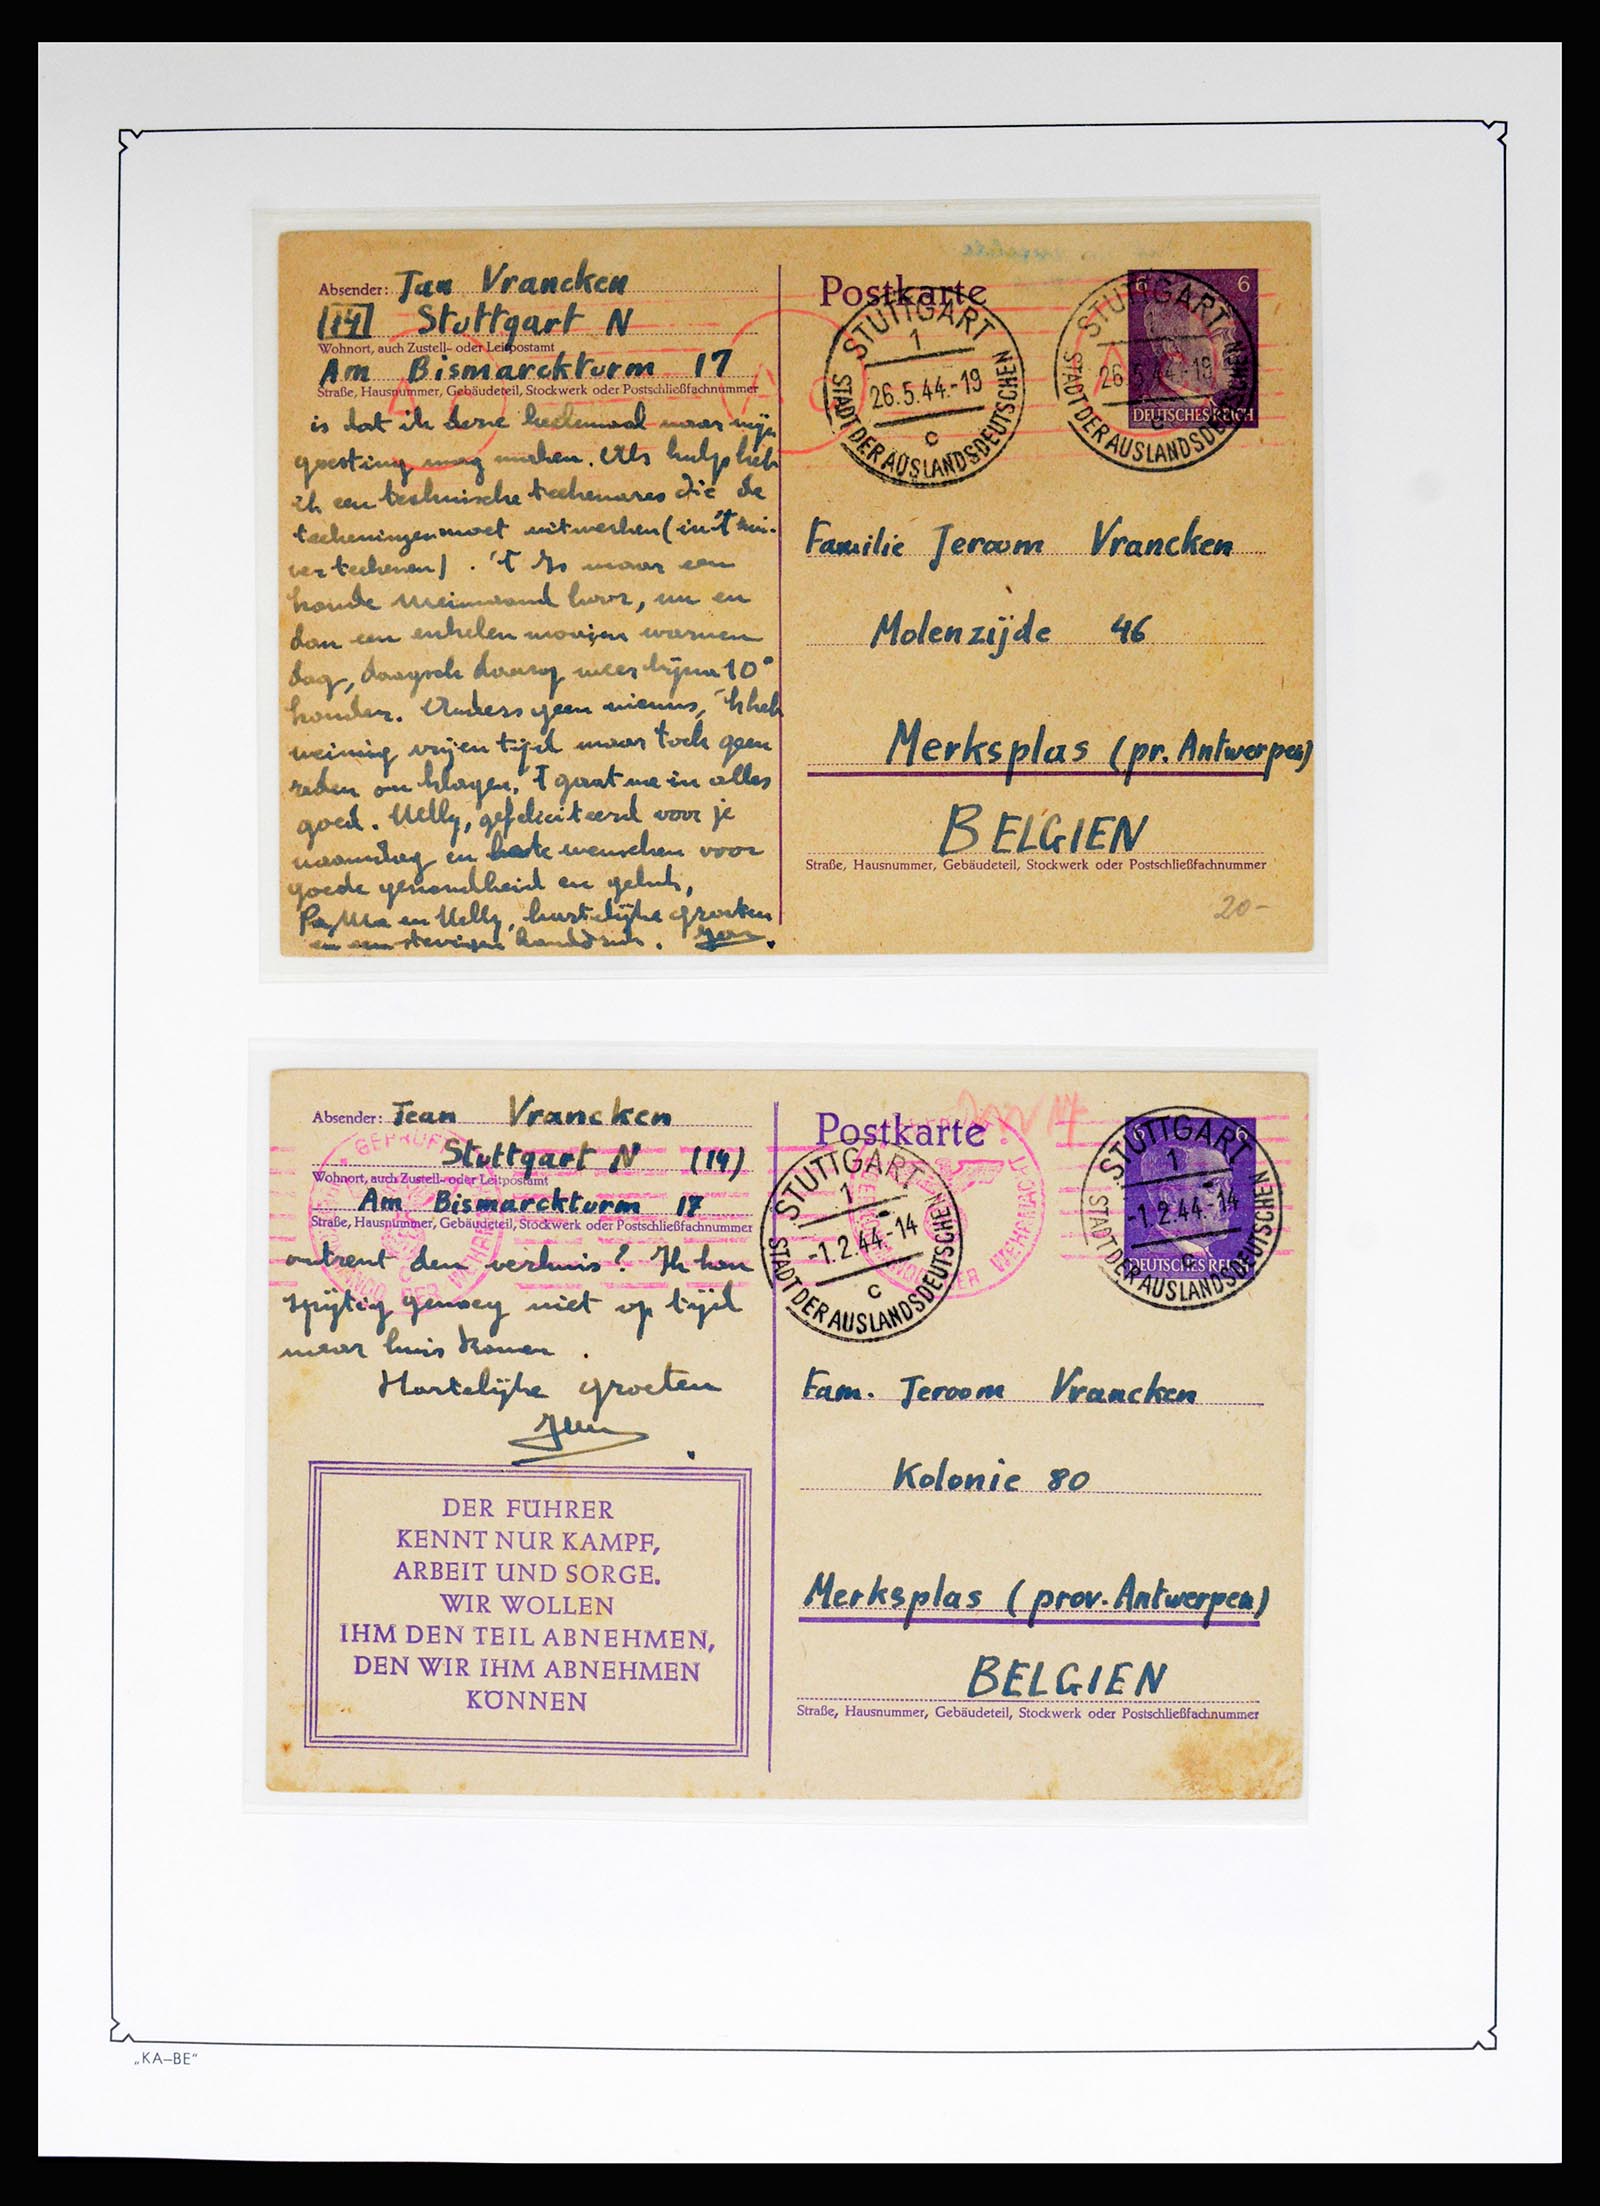 Absender: Jan Vrancken
(14) Stuttgart N
Wohnort, auch Zustell- oder Leitpostamt
Am Bismarckturm 17
Straße, Hausnummer, Gebäudeteil, Stockwerk oder Postschließfachnummer
is dat ik deze heelemaal naar mijn
goesting mag maken. Als hulp heb
ik een technische teekenares die de
teekeningen moet uitwerken (in 't
teekenen). 't Is maar een
koude Meimaand hoor, nu en
dan een enkelen mooien warmen
dag, daags daarop weer bijna 10°
kouder. Anders geen nieuws, 'k heb
weinig vrijen tijd maar toch geen
reden om klagen. 't gaat me in alles
goed. Nelly, gefeliciteerd voor je
naamdag en beste wenschen voor
goede gezondheid en geluk,
Pa, Ma en Nelly, hartelijke groeten
en een stevigen handdruk. Jan.
Postkarte
STUTTGART
1
26.5.44.-19
c
STADT DER AUSLANDSDEUTSCHEN
STUTTGART
1
26.5.44.-19
c
STADT DER AUSLANDSDEUTSCHEN
6 6
DEUTSCHES REICH
Familie Jeroom Vrancken
Molenzijde 46
Merksplas (pr. Antwerpen)
BELGIEN
Straße, Hausnummer, Gebäudeteil, Stockwerk oder Postschließfachnummer
20-
Absender: Jean Vrancken
Stuttgart N (14)
Wohnort, auch Zustell- oder Leitpostamt
Am Bismarckturm 17
Straße, Hausnummer, Gebäudeteil, Stockwerk oder Postschließfachnummer
omtrent den verhuis? Ik kon
spijtig genoeg niet op tijd
naar huis komen.
Hartelijke groeten
DER FÜHRER
KENNT NUR KAMPF,
ARBEIT UND SORGE.
WIR WOLLEN
IHM DEN TEIL ABNEHMEN,
DEN WIR IHM ABNEHMEN
KÖNNEN
Postkarte
STUTTGART
1
-1.2.44.-14
c
STADT DER AUSLANDSDEUTSCHEN
STUTTGART
1
-1.2.44.-14
c
STADT DER AUSLANDSDEUTSCHEN
6 6
DEUTSCHES REICH
Fam. Jeroom Vrancken
Kolonie 80
Merksplas (prov. Antwerpen)
BELGIEN
Straße, Hausnummer, Gebäudeteil, Stockwerk oder Postschließfachnummer
„KA–BE"